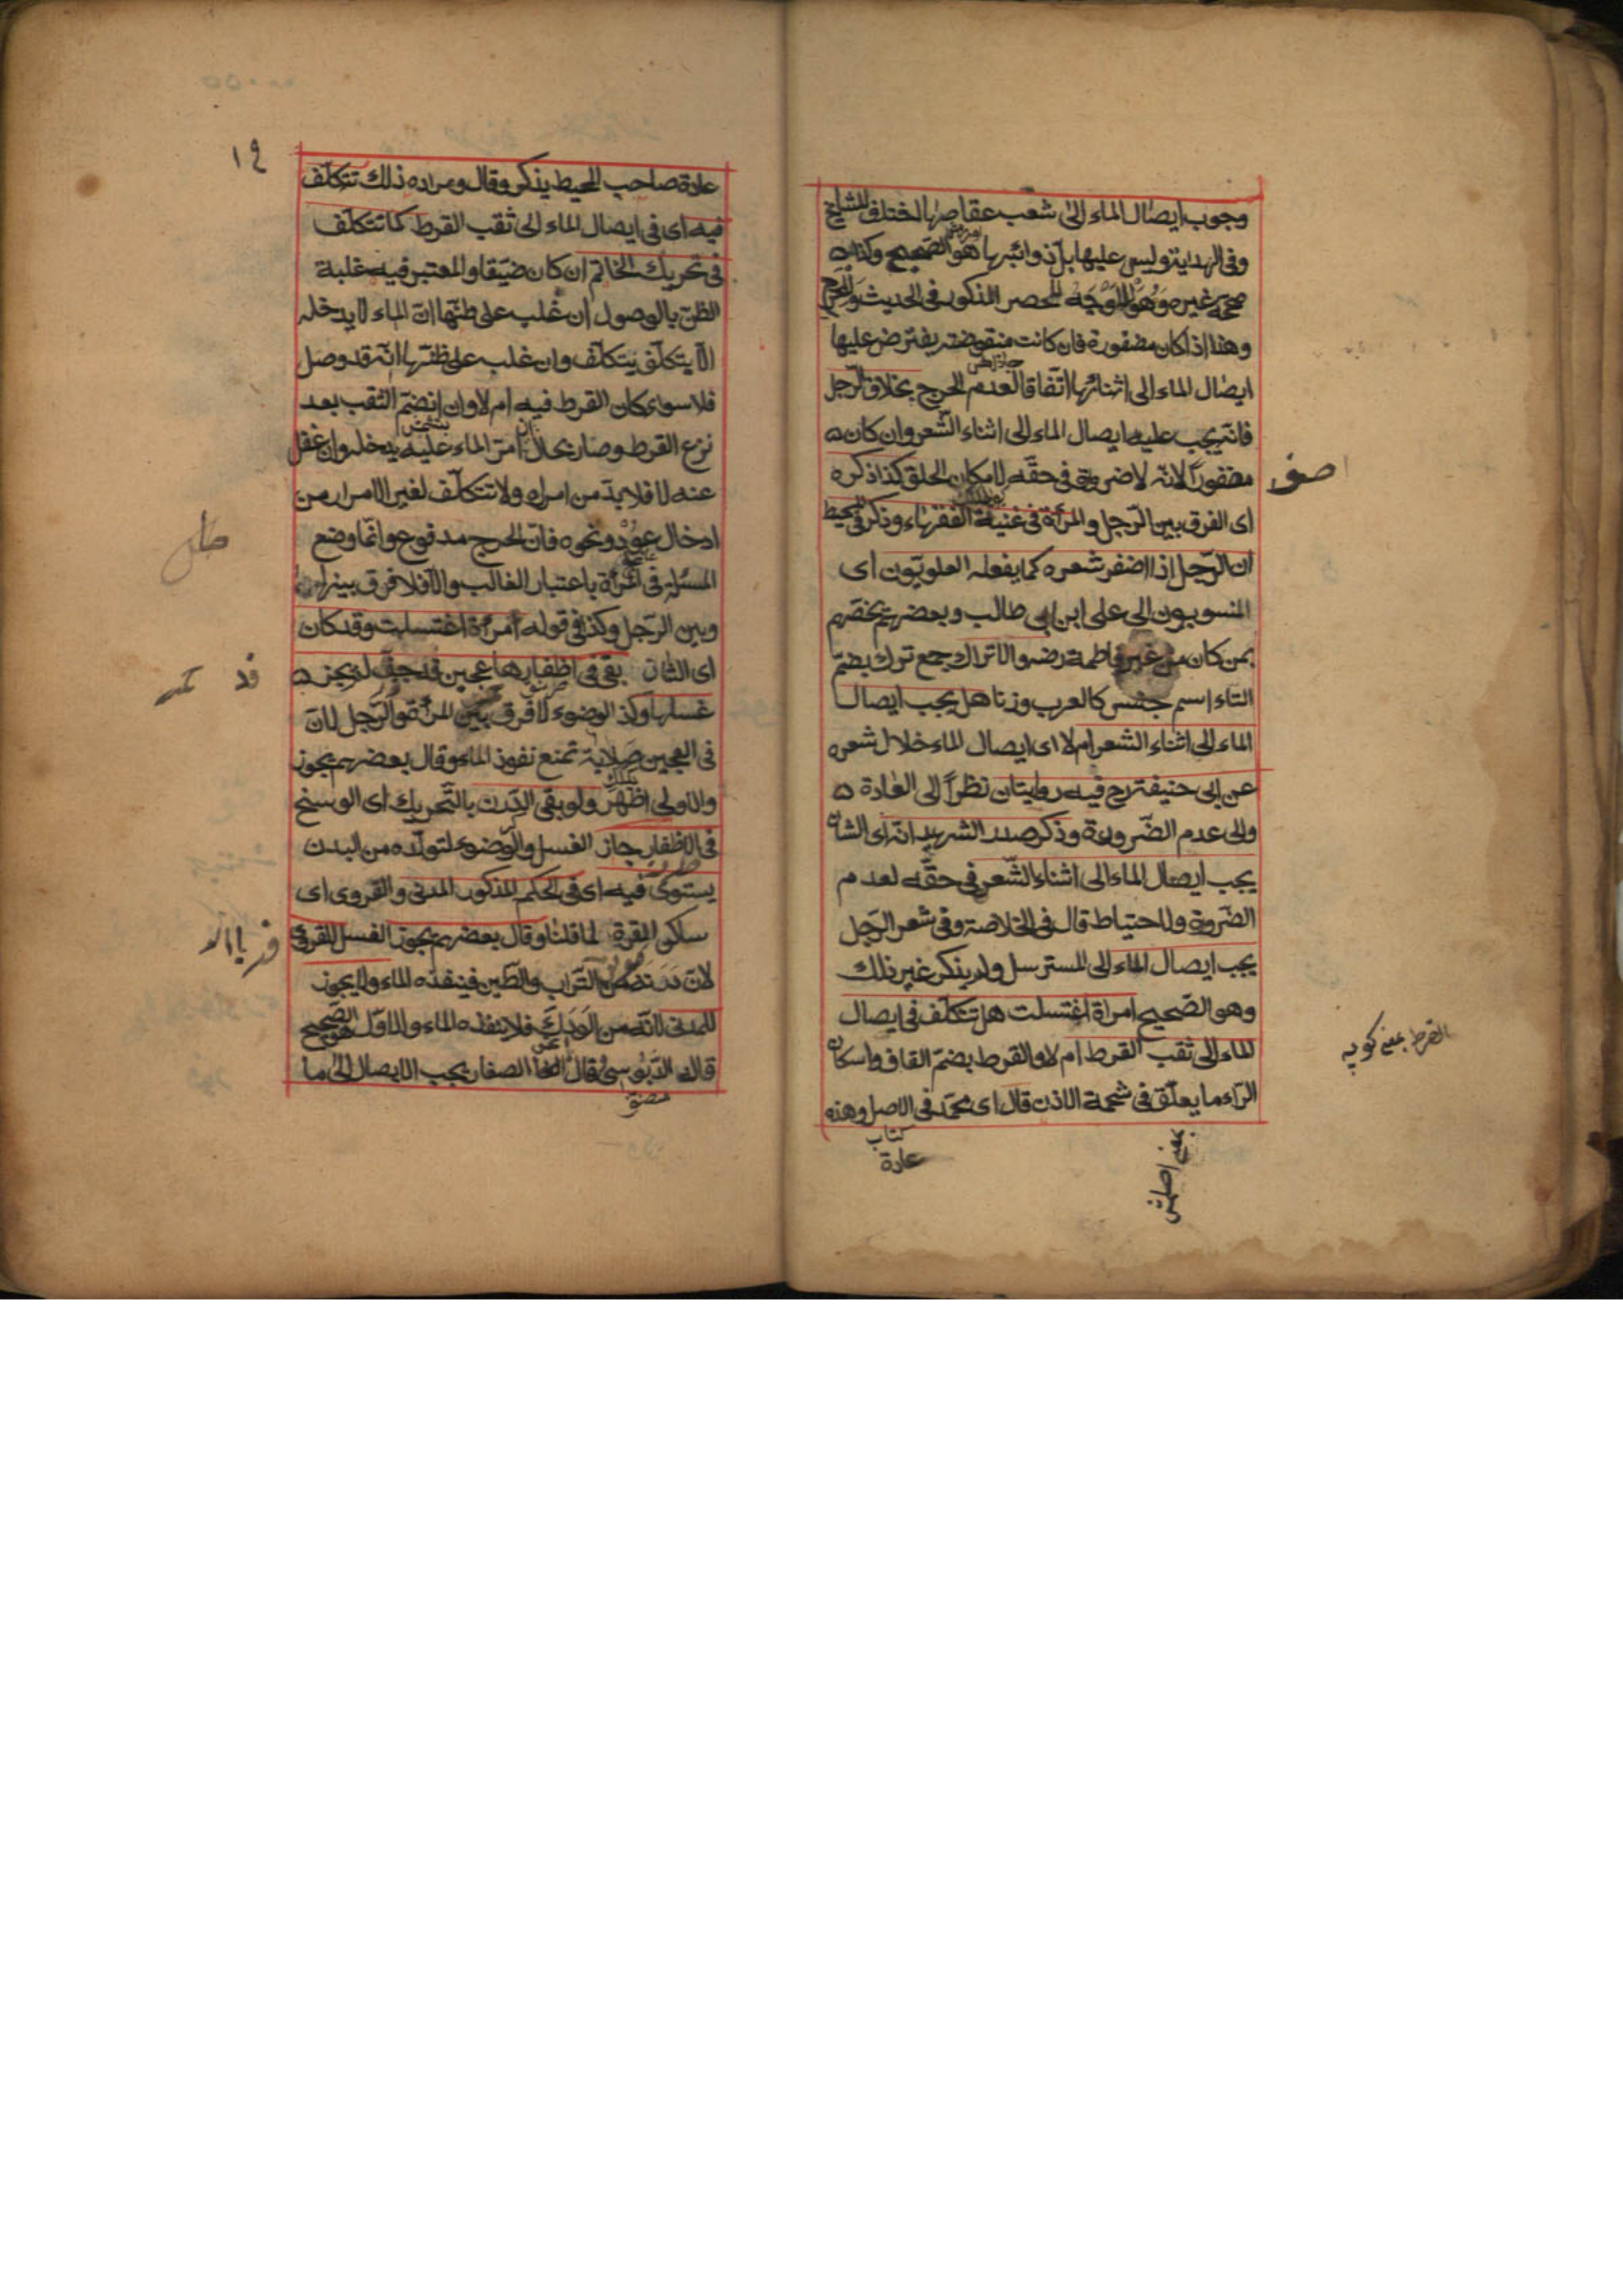 وجوب ايصال الماء الى شعب عقاصها اختلف المشايخ
وفى الهداية وليس عليها بل ذوائبها هو الصحيح وكذا
صححه غيره وهو الموجه للحصر المذكور فى الحديث وللحرج
وهذا اذا كان مضفورة فان كانت منقوضة يفترض عليها
ايصال الماء الى اثنائها اتفاقا لعدم الحرج بخلاف الرجل
فانه يجب عليه ايصال الماء الى اثناء الشعر وان كان
مضفورا لانه لا ضرورة فى حقه لامكان الحلق كذا ذكره
اى الفرق بين الرجل والمرأة فى غنية الفقهاء وذكر فى المحيط
ان الرجل اذا اضفر شعره كما يفعله العلويون اى
المنسوبون الى على ابن ابى طالب وبعضهم يخصهم
بمن كان من غير فاطمة رضه والاتراك جمع ترك بضم
التاء اسم جنس كالعرب وزنا هل يجب ايصال
الماء الى اثناء الشعر ام لا اى ايصال الماء خلال شعره
عن ابى حنيفة رح فيه روايتان نظرا الى العادة
والى عدم الضرورة وذكر صدر الشهيد انه اى الشان
يجب ايصال الماء الى اثناء الشعر فى حقه لعدم
الضرورة وللاحتياط قال فى الخلاصة وفى شعر الرجل
يجب ايصال الماء الى المسترسل ولم يذكر غير ذلك
وهو الصحيح امرأة اغتسلت هل تتكلف فى ايصال
الماء الى ثقب القرط ام لا والقرط بضم القاف واسكان
الراء ما يعلق فى شحمة الاذن قال اى محمد فى الاصل وهذه
كتاب
عادة
القرط يعنى كوپه
١٩
عادة صاحب المحيط يذكر وقال ومراده ذلك تتكلف
فيه اى فى ايصال الماء الى ثقب القرط كما تتكلف
فى تحريك الخاتم ان كان ضيقا والمعتبر فيه غلبة
الظن بالوصول ان غلب على ظنها ان الماء لا يدخله
الا بتكلف يتكلف وان غلب على ظنها انه قد وصل
فلا سواء كان القرط فيه ام لا وان انضم الثقب بعد
نزع القرط وصار بحال ان امر الماء عليه يدخله وان غفل
عنه لا فلا بد من امراره ولا تتكلف لغير الامرار من
ادخال عود ونحوه فان الحرج مدفوع وانما وضع
المسئلة فى المرأة باعتبار الغالب والا فلا فرق بينها
وبين الرجل وكذا فى قوله امرأة اغتسلت وقد كان
اى الشان بقى فى اظفارها عجين قد جف لم يجز
غسلها وكذا الوضوء لا فرق بين المرأة والرجل لان
فى العجين صلابة تمنع نفوذ الماء وقال بعضهم يجوز
والاولى اظهر ولو بقى الدرن بالتحريك اى الوسخ
فى الاظفار جاز الغسل والوضوء لتولده من البدن
يستوى فيه اى فى الحكم المذكور المدنى والقروى اى
ساكن القرة لما قلنا وقال بعضهم يجوز الغسل للقروى
لان درنه من التراب والطين فينفذه الماء ولا يجوز
للمدنى لانه من الودك فلا ينفذه الماء والاول هو الصحيح
قاله الدبوسى وقال الصفار يجب الايصال الى ما